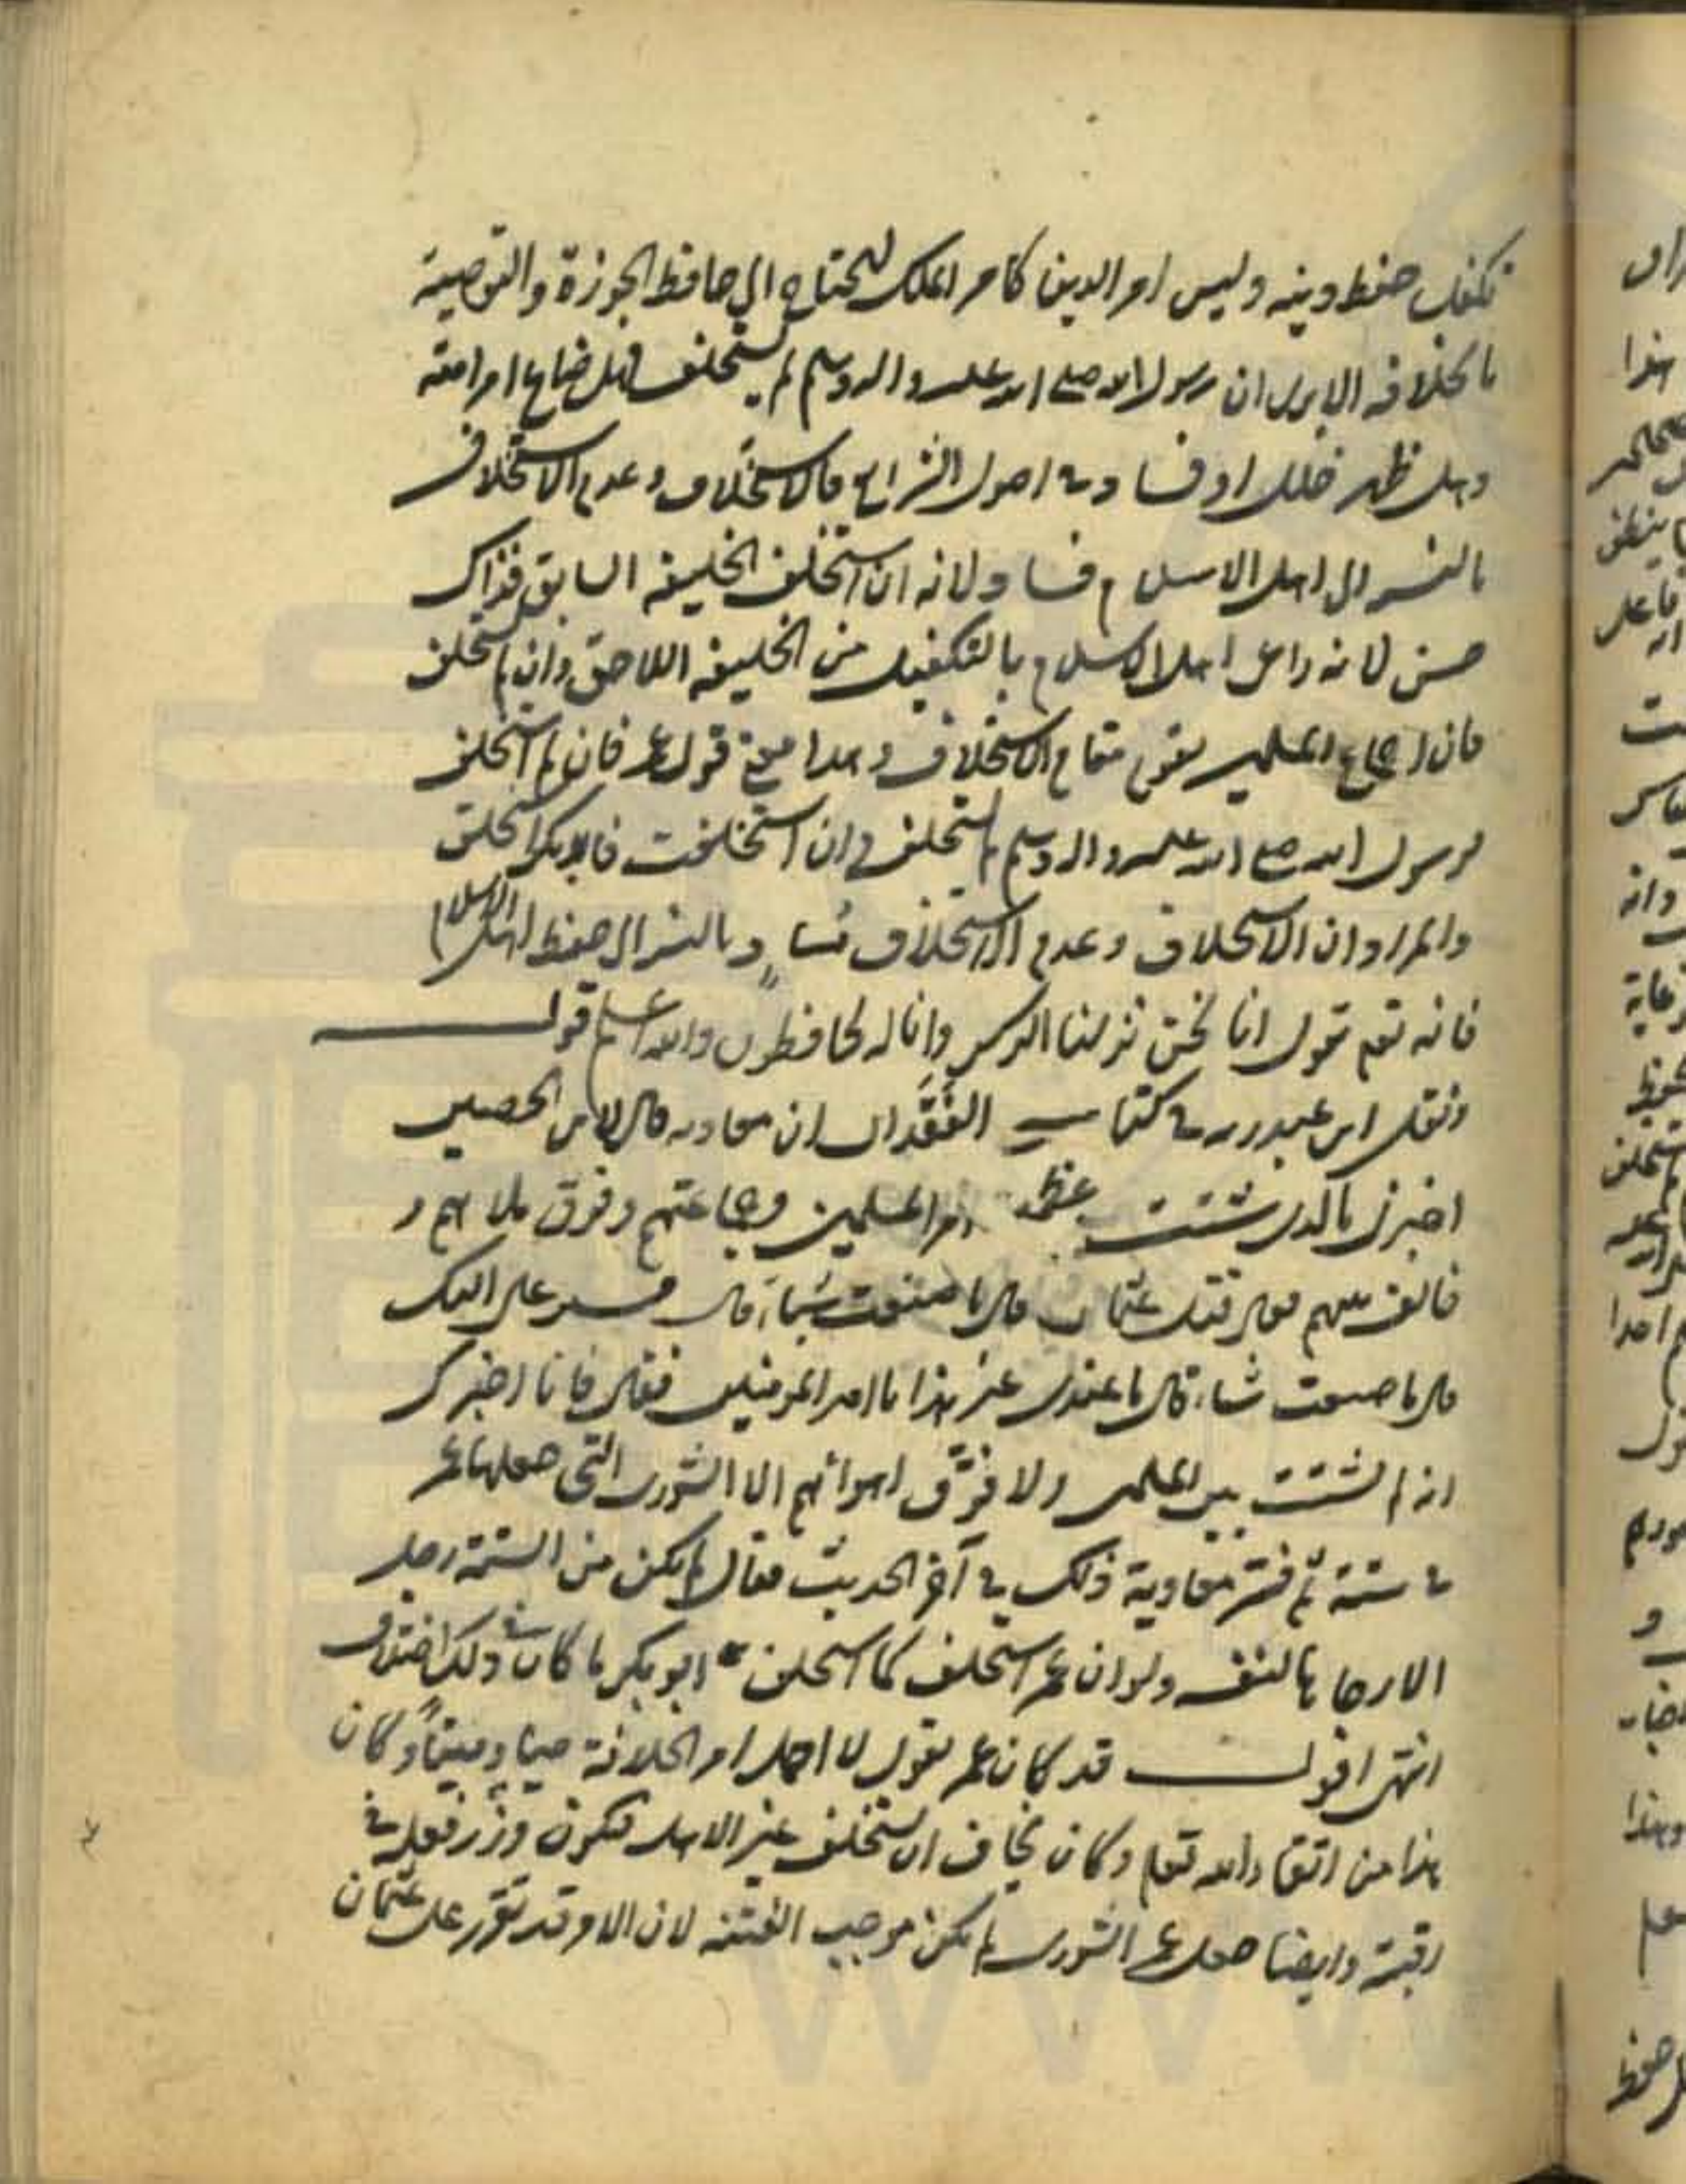 تكفل حفظ دينه وليس امر الدين كامر الملك ليحتاج الى حافظ الحوزة والتوصية
بالخلافة الا يرى ان رسول الله صلى الله عليه واله وسلم لم يستخلف فهل ضاع امر امته
وهل ظهر خلل او فساد في اصول الشرايع فالاستخلاف وعدم الاستخلاف
بالنسبة الى اهل الاسلام ولانه ان استخلف الخليفة السابق فذاك
حسن لانه راعى اهل الاسلام بالتكفيل من الخليفة اللاحق وان لم يستخلف
فان اجماع المسلمين يقوم مقام الاستخلاف وهذا معنى قول عمر فان لم استخلف
فرسول الله صلى الله عليه واله وسلم لم يستخلف وان استخلفت فابو بكر استخلف
والمراد ان الاستخلاف وعدم الاستخلاف بالنسبة الى حفظ اهل الاسلام
فانه تعم تقول انا نحن نزلنا الذكر وانا له لحافظون والله اعلم قوله
ونقل ابن عبد ربه في كتاب العقد ان معاوية قال لابن الحصين
اخبرني بالذي شتت امر المسلمين وجماعتهم وفرق ملاهم و
خالف بينهم فقال قتل عثمان قال ما صنعت شيئا قال فمسير علي اليك
قال ما صنعت شيئا قال ما عندي غير هذا يا امير المؤمنين فقال فانا اخبرك
انه لم يشتت بين المسلمين ولا فرّق اهوائهم الا الشورى التي جعلها عمر
في ستة ثم فسر معاوية ذلك في آخر الحديث فقال لم يكن من الستة رجل
الا رجاها لنفسه ولو ان عمر استخلف كما استخلف ابو بكر ما كان في ذلك اختلاف
انتهى اقول قد كان عمر يقول لا احمل امر الخلافة حيا وميتاً وكان
هذا من اتقاء الله تعم وكان يخاف ان يستخلف غير الاهل فيكون وزر فعله في
رقبته وايضا جعل عمر الشورى لم يكن موجب الفتنه لان الامر قد تقرر على عثمان